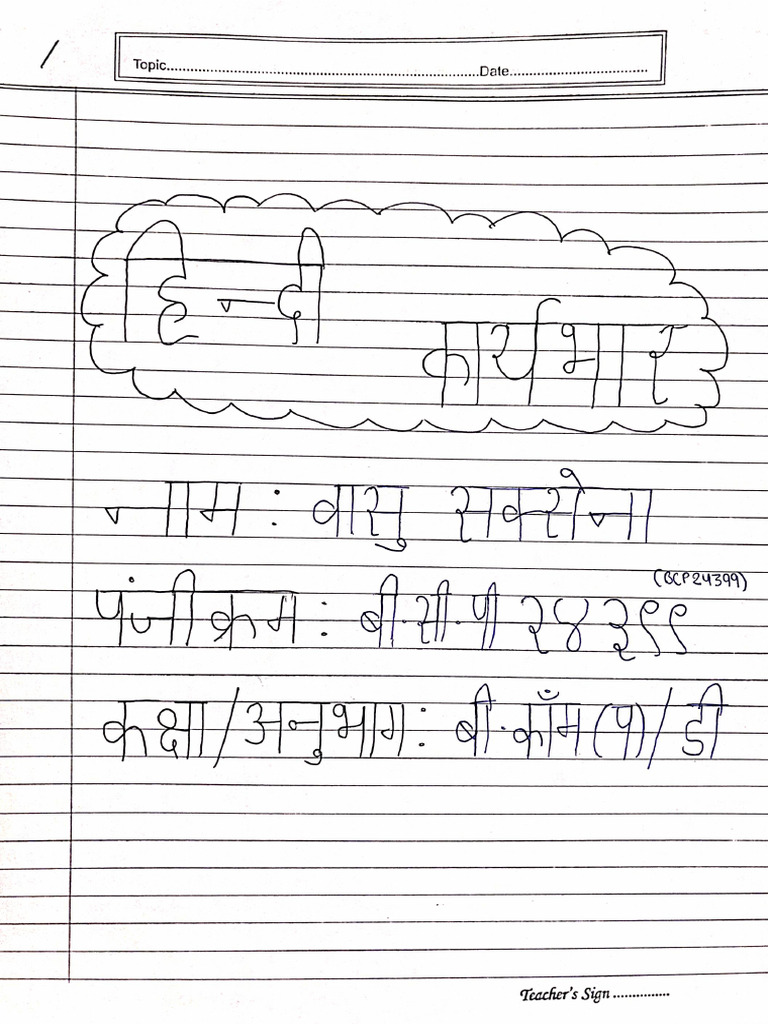 Topic........................Date........................
हिन्दी
कार्यभार
नाम : वासु सक्सेना
(BCP24399)
पंजीक्रम : बी.सी.पी २४३९९
कक्षा/अनुभाग: बी.कॉम (प)/डी
Teacher's Sign ...............